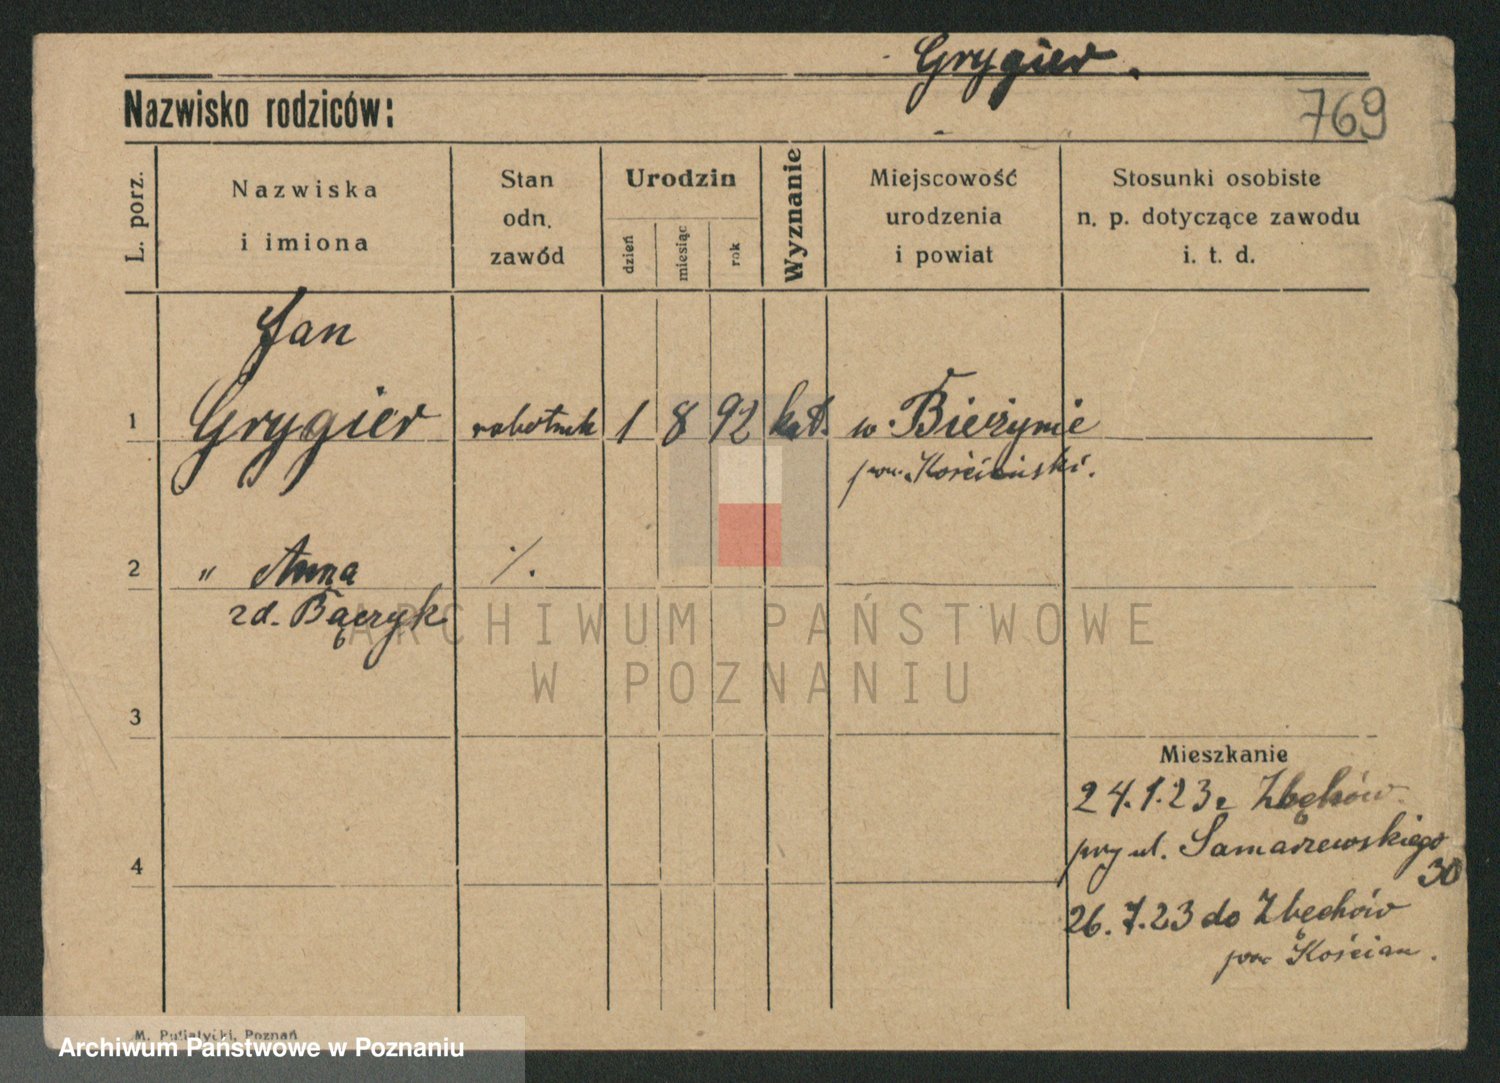 Grygier.
769
Nazwisko rodziców:
L. porz.
Nazwiska
i imiona
Stan
odn.
zawód
Urodzin
dzień
miesiąc
rok
Wyznanie
Miejscowość
urodzenia
i powiat
Stosunki osobiste
n. p. dotyczące zawodu
i. t. d.
Jan
1 Grygier robotnik 1 8 92 kat. w. Bieżynie
pow. Kościański.
2 " Anna ./.
zd. Bączyk
3
Mieszkanie
24.1.23 z Zbęchów
przy ul. Samarzewskiego
30
4
26.7.23 do Zbęchów
pow. Kościan.
M. Putiatycki, Poznań
ARCHIWUM PAŃSTWOWE
W POZNANIU
Archiwum Państwowe w Poznaniu